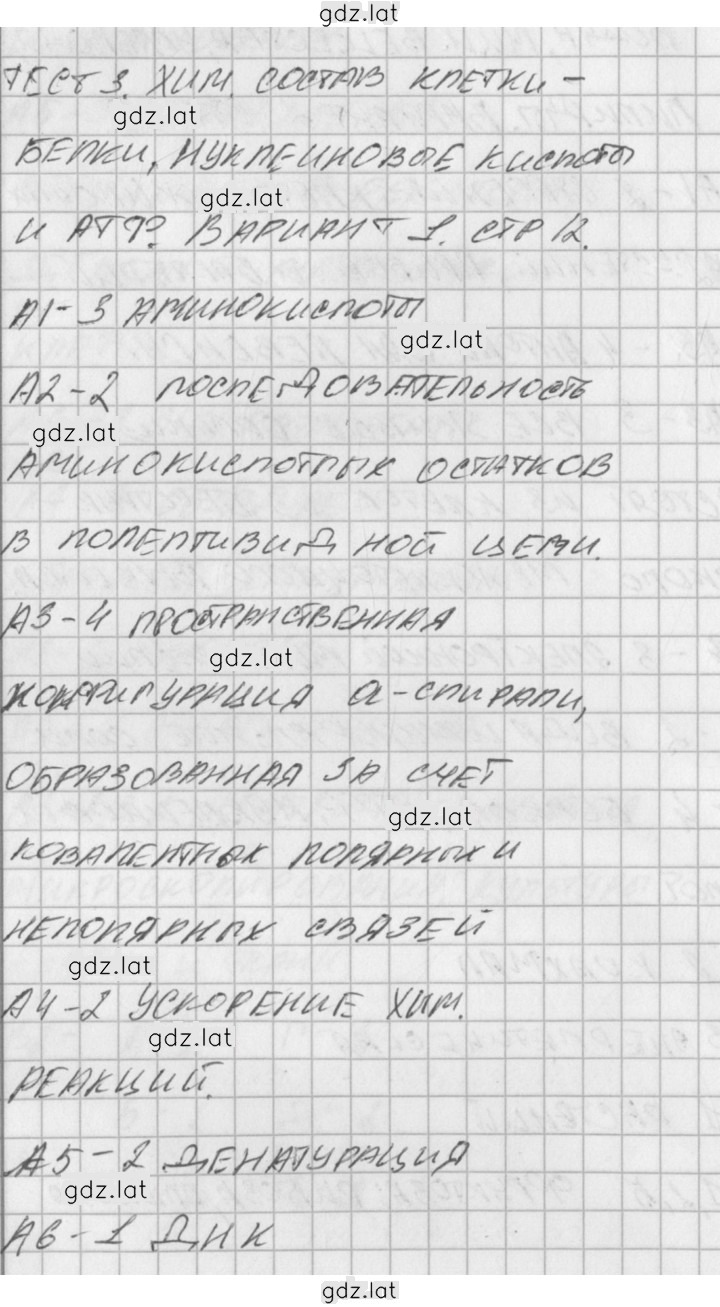 gdz.lat
ТЕСТ 3. ХИМ. СОСТАВ КЛЕТКИ -
gdz.lat
БЕЛКИ, НУКЛЕИНОВЫЕ КИСЛОТЫ
gdz.lat
И АТФ? ВАРИАНТ 1. СТР 12.
А1-3 АМИНОКИСЛОТЫ
gdz.lat
А2-2 ПОСЛЕДОВАТЕЛЬНОСТЬ
gdz.lat
АМИНОКИСЛОТНЫХ ОСТАТКОВ
В ПОЛЕПТИВИДНОЙ ЦЕПИ.
А3-4 ПРОСТРАНСТВЕННАЯ
gdz.lat
КОНФИГУРАЦИЯ α-СПИРАЛИ,
ОБРАЗОВАННАЯ ЗА СЧЕТ
gdz.lat
КОВАЛЕНТНЫХ ПОЛЯРНЫХ И
НЕПОЛЯРНЫХ СВЯЗЕЙ
gdz.lat
А4-2 УСКОРЕНИЕ ХИМ.
gdz.lat
РЕАКЦИЙ.
А5-2 ДЕНАТУРАЦИЯ
gdz.lat
А6-1 ДНК
gdz.lat